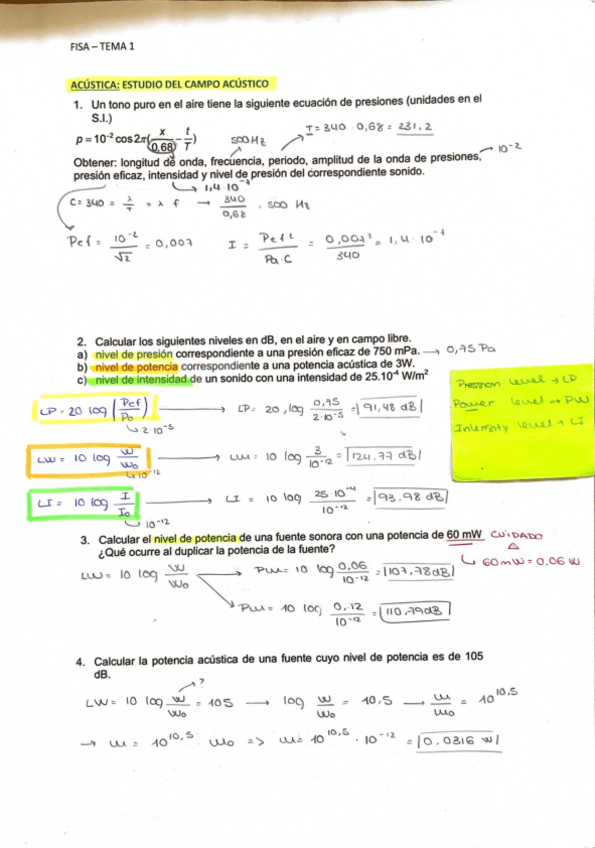 FISA – TEMA 1
ACÚSTICA: ESTUDIO DEL CAMPO ACÚSTICO
1. Un tono puro en el aire tiene la siguiente ecuación de presiones (unidades en el
S.I.)
I = 340 · 0,68 = 231,2
p = 10⁻² cos 2π(x/0,68 − t/T)
500 Hz
10⁻²
Obtener: longitud de onda, frecuencia, periodo, amplitud de la onda de presiones,
presión eficaz, intensidad y nivel de presión del correspondiente sonido.
1,4 · 10⁻⁷
C = 340 = λ/T = λ f → 340/0,68 , 500 Hz
Pef = 10⁻²/√2 = 0,007 I = Pef²/Pa·C = 0,007²/340 = 1,4 · 10⁻⁷
2. Calcular los siguientes niveles en dB, en el aire y en campo libre.
a) nivel de presión correspondiente a una presión eficaz de 750 mPa. → 0,75 Pa
b) nivel de potencia correspondiente a una potencia acústica de 3W.
c) nivel de intensidad de un sonido con una intensidad de 25.10⁻⁴ W/m²
Pression level → LP
Power level → PW
Intensity level → LI
LP = 20 log (Pef/Po) → LP = 20 , log 0,75/2·10⁻⁵ = 91,48 dB
2·10⁻⁵
LW = 10 log W/Wo → LW = 10 log 3/10⁻¹² = 124,77 dB
10⁻¹²
LI = 10 log I/Io → LI = 10 log 25·10⁻⁴/10⁻¹² = 93,98 dB
10⁻¹²
3. Calcular el nivel de potencia de una fuente sonora con una potencia de 60 mW CUIDADO
¿Qué ocurre al duplicar la potencia de la fuente?
60 mW = 0,06 W
LW = 10 log W/Wo → PW = 10 log 0,06/10⁻¹² = 107,78 dB
→ PW = 10 log 0,12/10⁻¹² = 110,79 dB
4. Calcular la potencia acústica de una fuente cuyo nivel de potencia es de 105
dB.
?
LW = 10 log W/Wo = 105 → log W/Wo = 10,5 → W/Wo = 10^10,5
→ W = 10^10,5 · Wo => W = 10^10,5 · 10⁻¹² = 0,0316 W